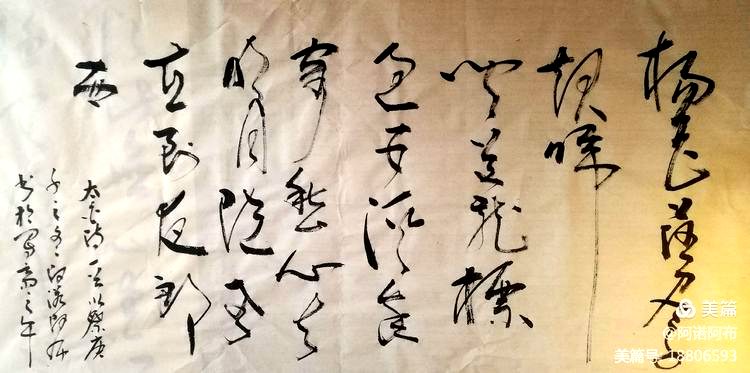 杨花落尽子
规啼
闻道龙标
过五溪我
寄愁心与
明月随君
直到夜郎
西
太白诗一首以祭庚
子之冬
美篇
@阿诺阿布
美篇号 18806593